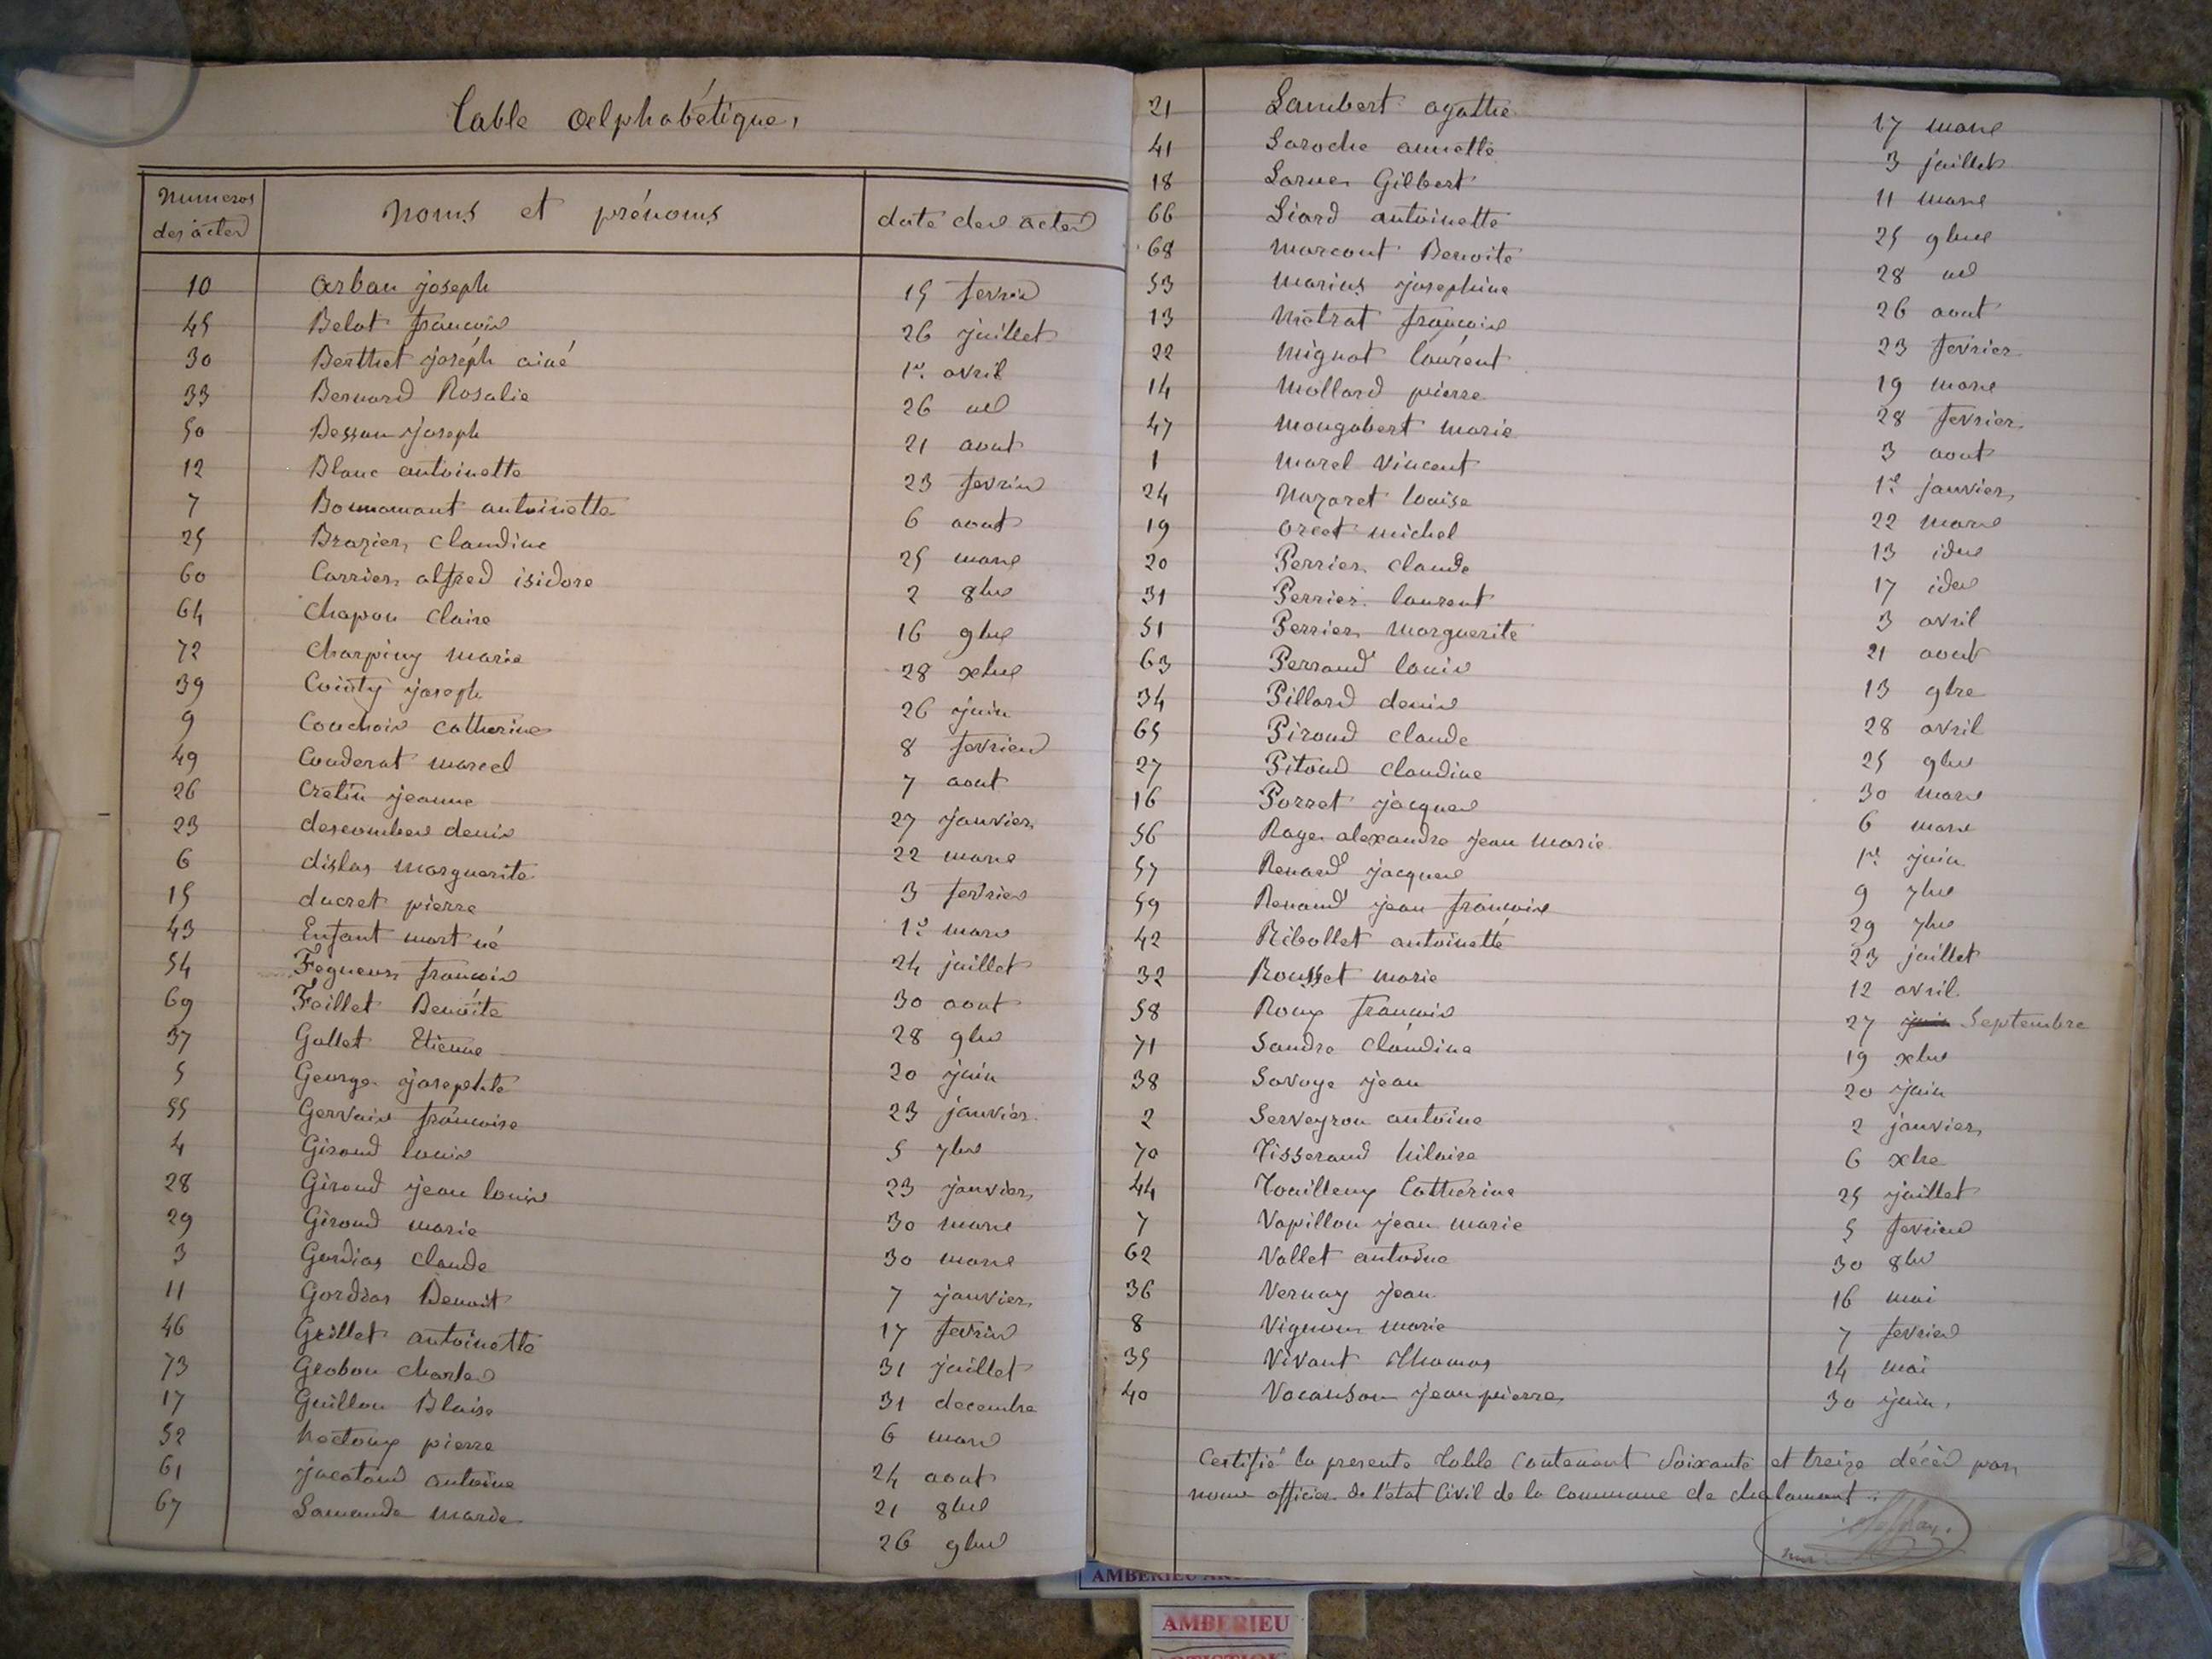 Table Alphabétique,
Numeros des actes
Noms et prénoms
date des actes
10 Arban joseph 15 fevrier
45 Belot francois 26 juillet
30 Berthet joseph aimé 1er avril
33 Bernard Rosalie 26 ad
50 Besson joseph 21 aout
12 Blanc antoinette 23 fevrier
7 Bonnamant antoinette 6 aout
25 Brazier claudine 25 mars
60 Carrier alfred isidore 2 8bre
64 Chapon Claire 16 9bre
72 Charpiny marie 28 xbre
39 Cointy joseph 26 juin
9 Couchoix Catherine 8 fevrier
49 Couderat marcel 7 aout
26 Cretin jeanne 27 janvier
23 descombes denis 22 mars
6 dislas marguerite 3 fevrier
15 ducret pierre 1er mars
43 Enfant mort né 24 juillet
54 Fegueur francois 30 aout
69 Feillet Benoite 28 9bre
37 Gallet Etienne 20 juin
5 George josephte 23 janvier
55 Gervais francoise 5 7bre
4 Giroud louis 23 janvier
28 Giroud jean louis 30 mars
29 Giroud marie 30 mars
3 Gordias Claude 7 janvier
11 Gordias Benoit 17 fevrier
46 Grillet antoinette 31 juillet
73 Grobon charles 31 decembre
17 Guillon Blaise 6 mars
52 hectoux pierre 24 aout
61 jacotaud antoine 21 8bre
67 Lamande marie 26 9bre
21 Lambert agathe 17 mars
41 Laroche annette 3 juillet
18 Larue Gilbert 11 mars
66 Liard antoinette 25 9bre
68 Marcout Benoite 28 ad
53 Marius josephine 26 aout
13 Metrat francois 23 fevrier
22 Mignot laurent 19 mars
14 Mollard pierre 28 fevrier
47 Mongobert marie 3 aout
1 Morel Vincent 1er janvier
24 Nazaret louise 22 mars
19 Orcet michel 13 idem
20 Perrier claude 17 idem
31 Perrier laurent 3 avril
51 Perrier marguerite 21 aout
63 Perraud louis 13 9bre
34 Pillard denis 28 avril
65 Piroud claude 25 9bre
27 Pitoud claudine 30 mars
16 Porret jacques 6 mars
56 Rage alexandre jean marie 1er juin
57 Renard jacques 9 7bre
59 Renaud jean francois 29 7bre
42 Ribollet antoinette 23 juillet
32 Rousset marie 12 avril
58 Roux francois 27 juin Septembre
71 Sandre Claudine 19 xbre
38 Savoye jean 20 juin
2 Serveyron antoine 2 janvier
70 Tisserand hilaire 6 xbre
44 Touilleux Catherine 25 juillet
7 Vapillon jean marie 5 fevrier
62 Vallet antoine 30 8bre
36 Vernay jean 16 mai
8 Vignon marie 7 fevrier
35 Vivant Thomas 14 mai
40 Vocanson jean pierre 30 juin
Certifié la presente Table Contenant Soixante et treize décès par
nous officier de l'état Civil de la Commune de chalamont
AMBERIEU
AMBERIEU